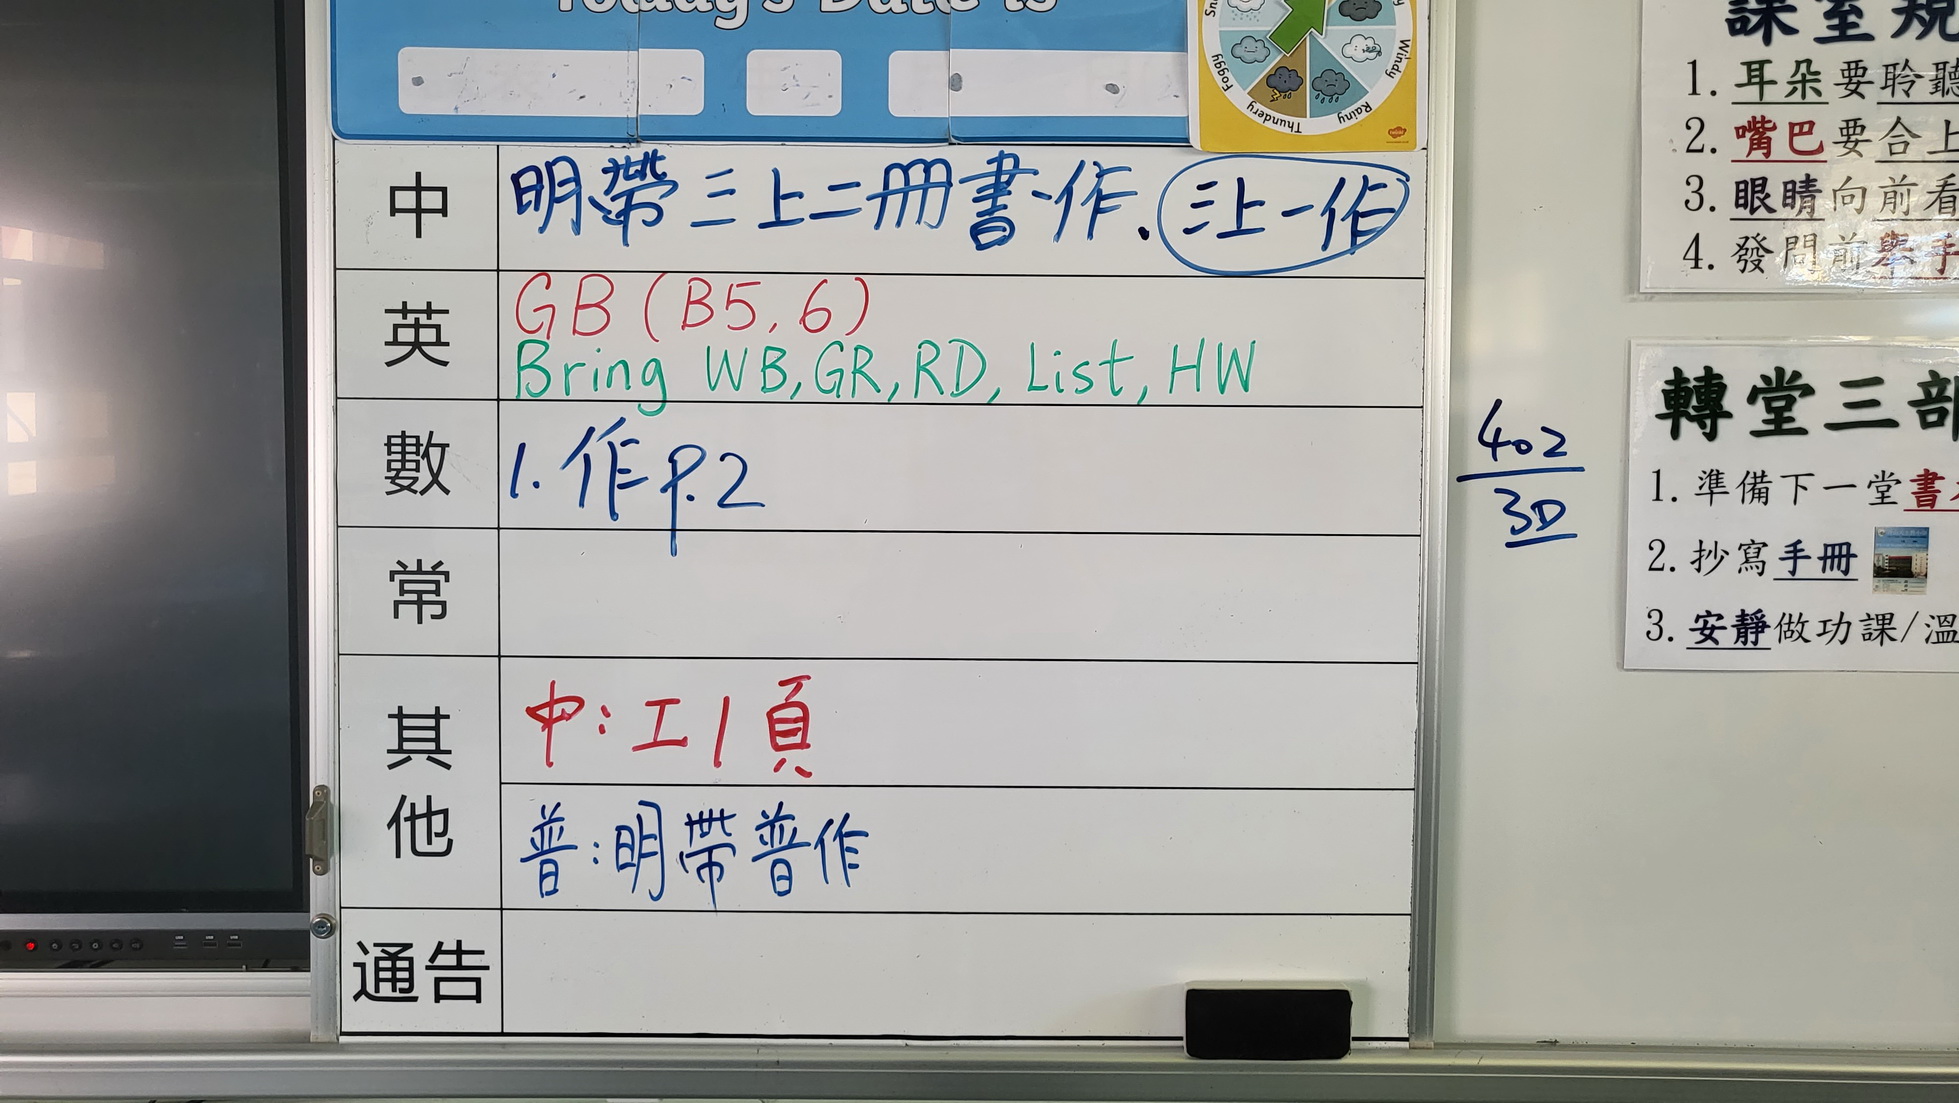 Today's Date is
Foggy
Thundery
Rainy
Windy
中 明帶三上二冊書、作. 三上一作
英 GB (B5, 6)
Bring WB, GR, RD, List, HW
數 1. 作 p.2
常
其他 中: 工1頁
普: 明帶普作
通告
402
3D
課室規
1. 耳朵要聆聽
2. 嘴巴要合上
3. 眼睛向前看
4. 發問前舉手
轉堂三部
1. 準備下一堂書
2. 抄寫手冊
3. 安靜做功課/溫